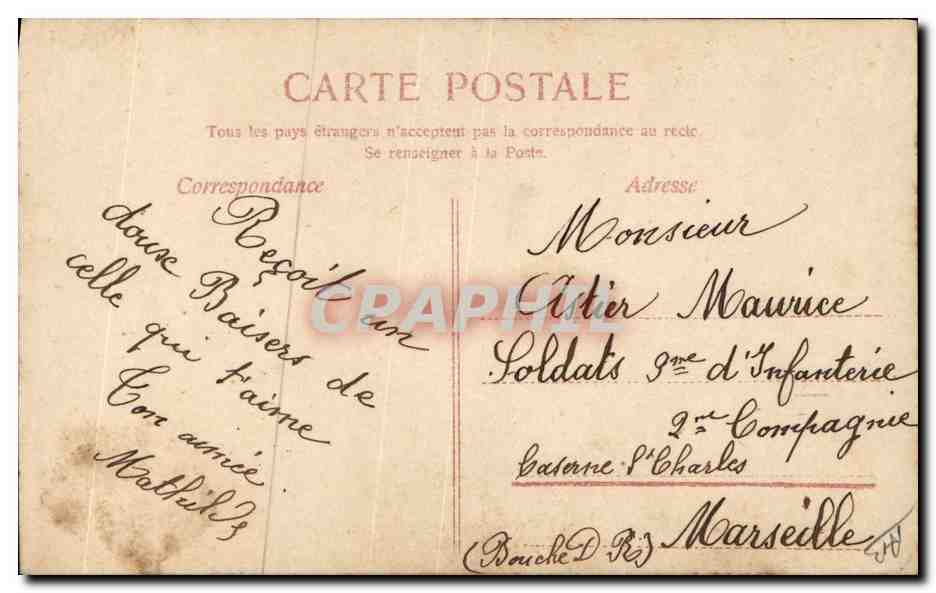 CARTE POSTALE
Tous les pays étrangers n'acceptent pas la correspondance au recto.
Se renseigner à la Poste.
Correspondance
Reçoit un
doux Baisers de
celle qui t'aime
Ton aimée
Mathilde
Adresse
Monsieur
Astier Maurice
Soldats 3me d'Infanterie
2me Compagnie
Caserne St Charles
Marseille
(Bouche D R)
CPAPHIL